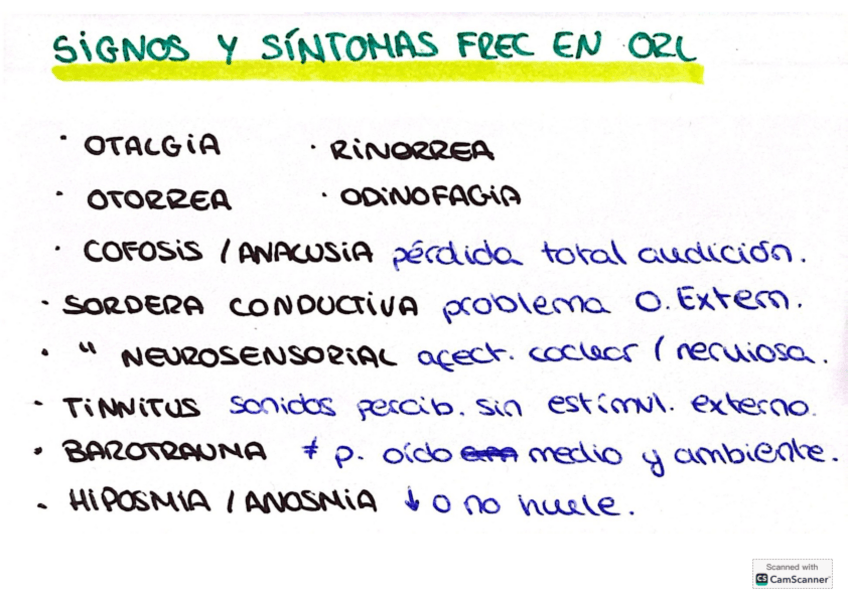 SiGNOS Y SÍNTOMAS FREC EN ORL
· OTALGiA · RiNORREA
· OTORREA · ODiNOFAGiA
· COFOSiS / ANACUSiA pérdida total audición.
· SORDERA CONDUCTiVA problema O. Extern.
· " NEUROSENSORiAL afect. coclear / nerviosa.
· TiNNiTUS sonidos percib. sin estímul. externo.
· BAROTRAUMA ≠ p. oído medio y ambiente.
· HiPOSMiA / ANOSMiA ↓ o no huele.
Scanned with
CS CamScanner